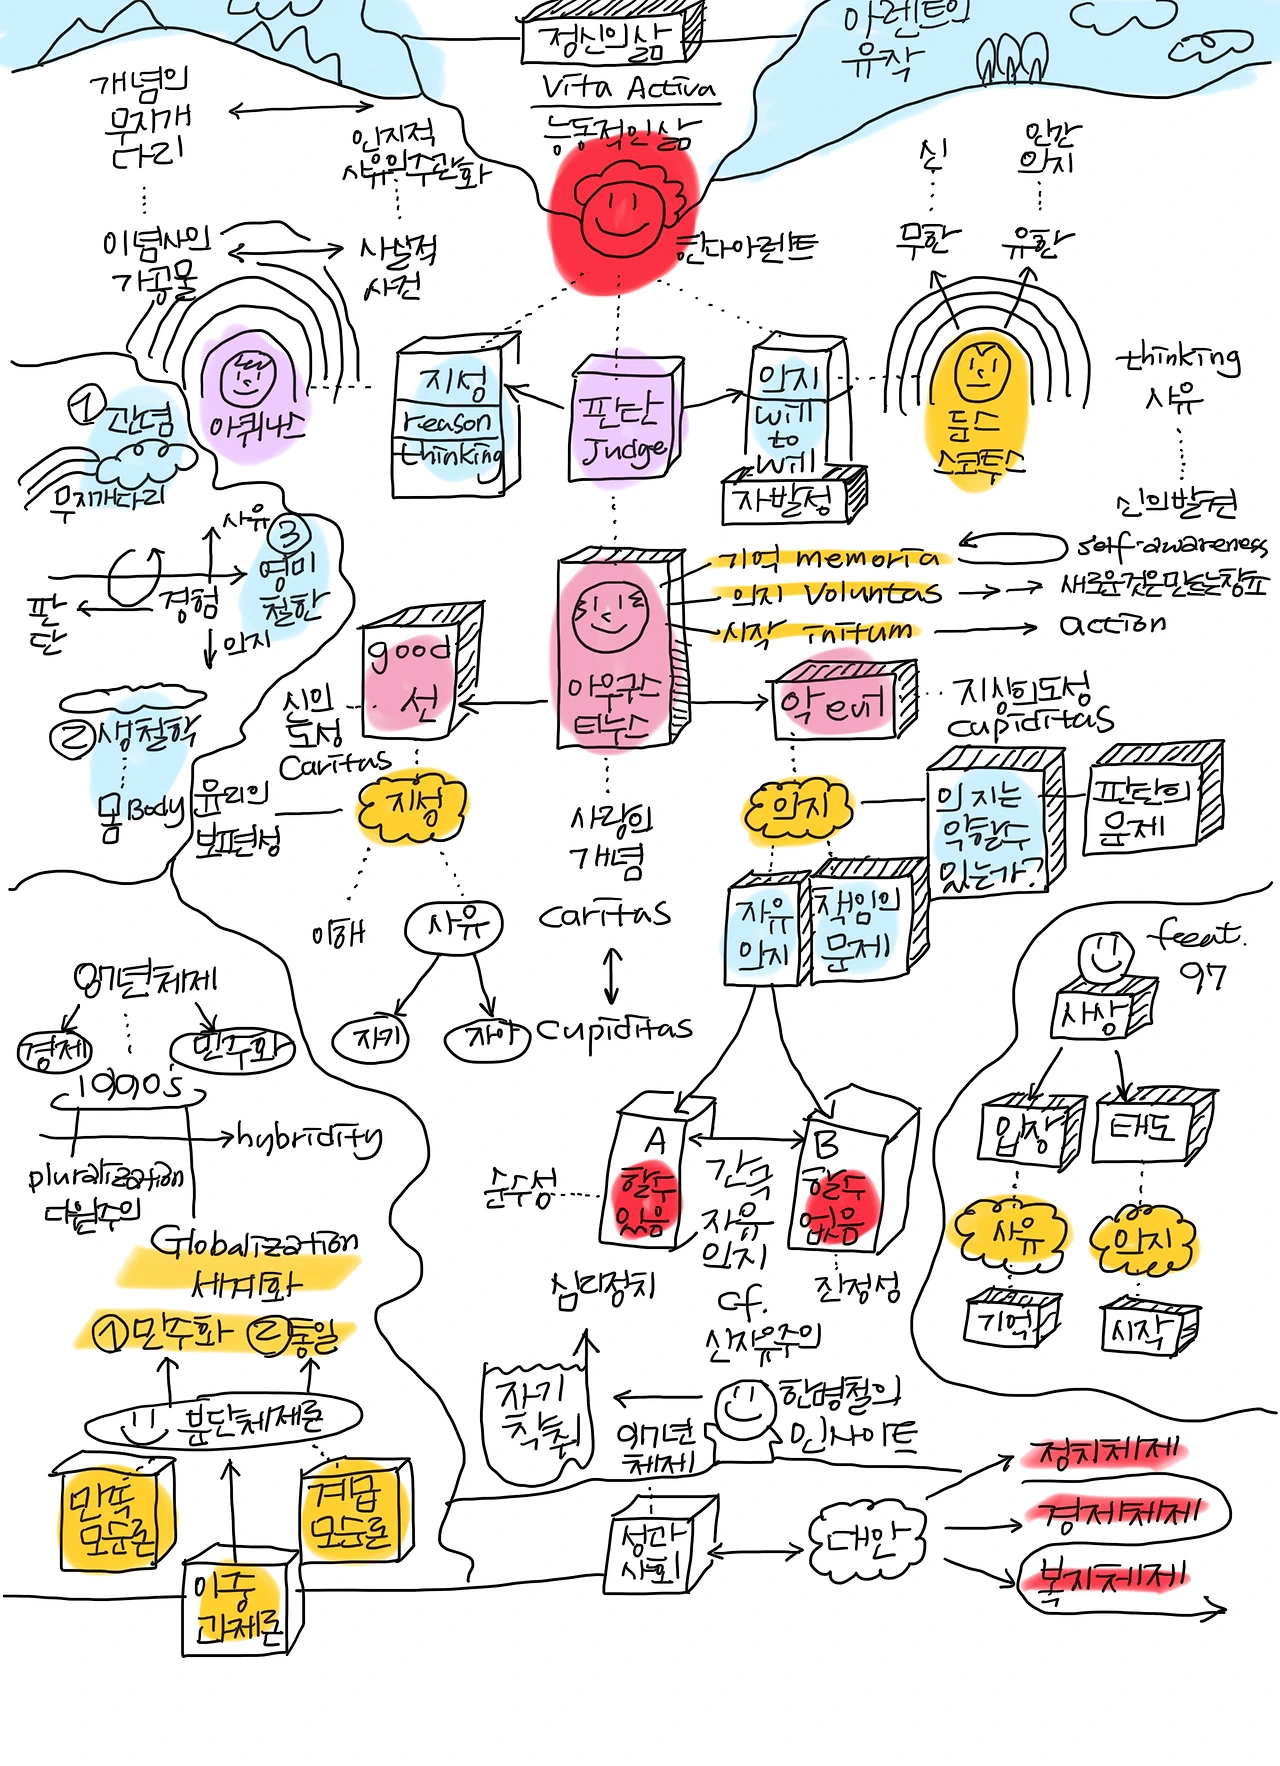 정신의삶
아렌트의
유작
Vita Activa
능동적인삶
개념의
무지개
다리
인지적
사유의주관화
이념사의
가공물
사실적
사건
한나아렌트
신
인간
의지
무한
유한
아퀴나스
지성
reason
thinking
판단
Judge
의지
will
to
will
자발성
둔스
스코투스
thinking
사유
신의발견
① 관념
무지개다리
사유
③
영미
철학
판
단
경험
의지
② 생철학
몸 Body
기억 memoria
self-awareness
의지 Voluntas
새로운것은만드는창조
시작 initum
action
아우구스
티누스
good
선
신의
도성
Caritas
악 evil
지상의도성
cupiditas
지성
윤리의
보편성
이해
사유
자기
자아
사랑의
개념
caritas
cupiditas
의지
의지는
악할수
있는가?
판단의
문제
자유
의지
책임의
문제
A
할수
있음
B
할수
없음
간극
자유
의지
순수성
진정성
심리정치
cf.
신자유주의
자기
착취
97년
체제
한병철의
인사이트
성과
사회
대안
정치체제
경제체제
복지체제
feat.
97
사상
입장
태도
사유
의지
기억
시작
87년체제
경제
민주화
1990's
hybridity
pluralization
다원주의
Globalization
세계화
①민주화 ②통일
분단체제론
민족
모순론
계급
모순론
이중
과제론